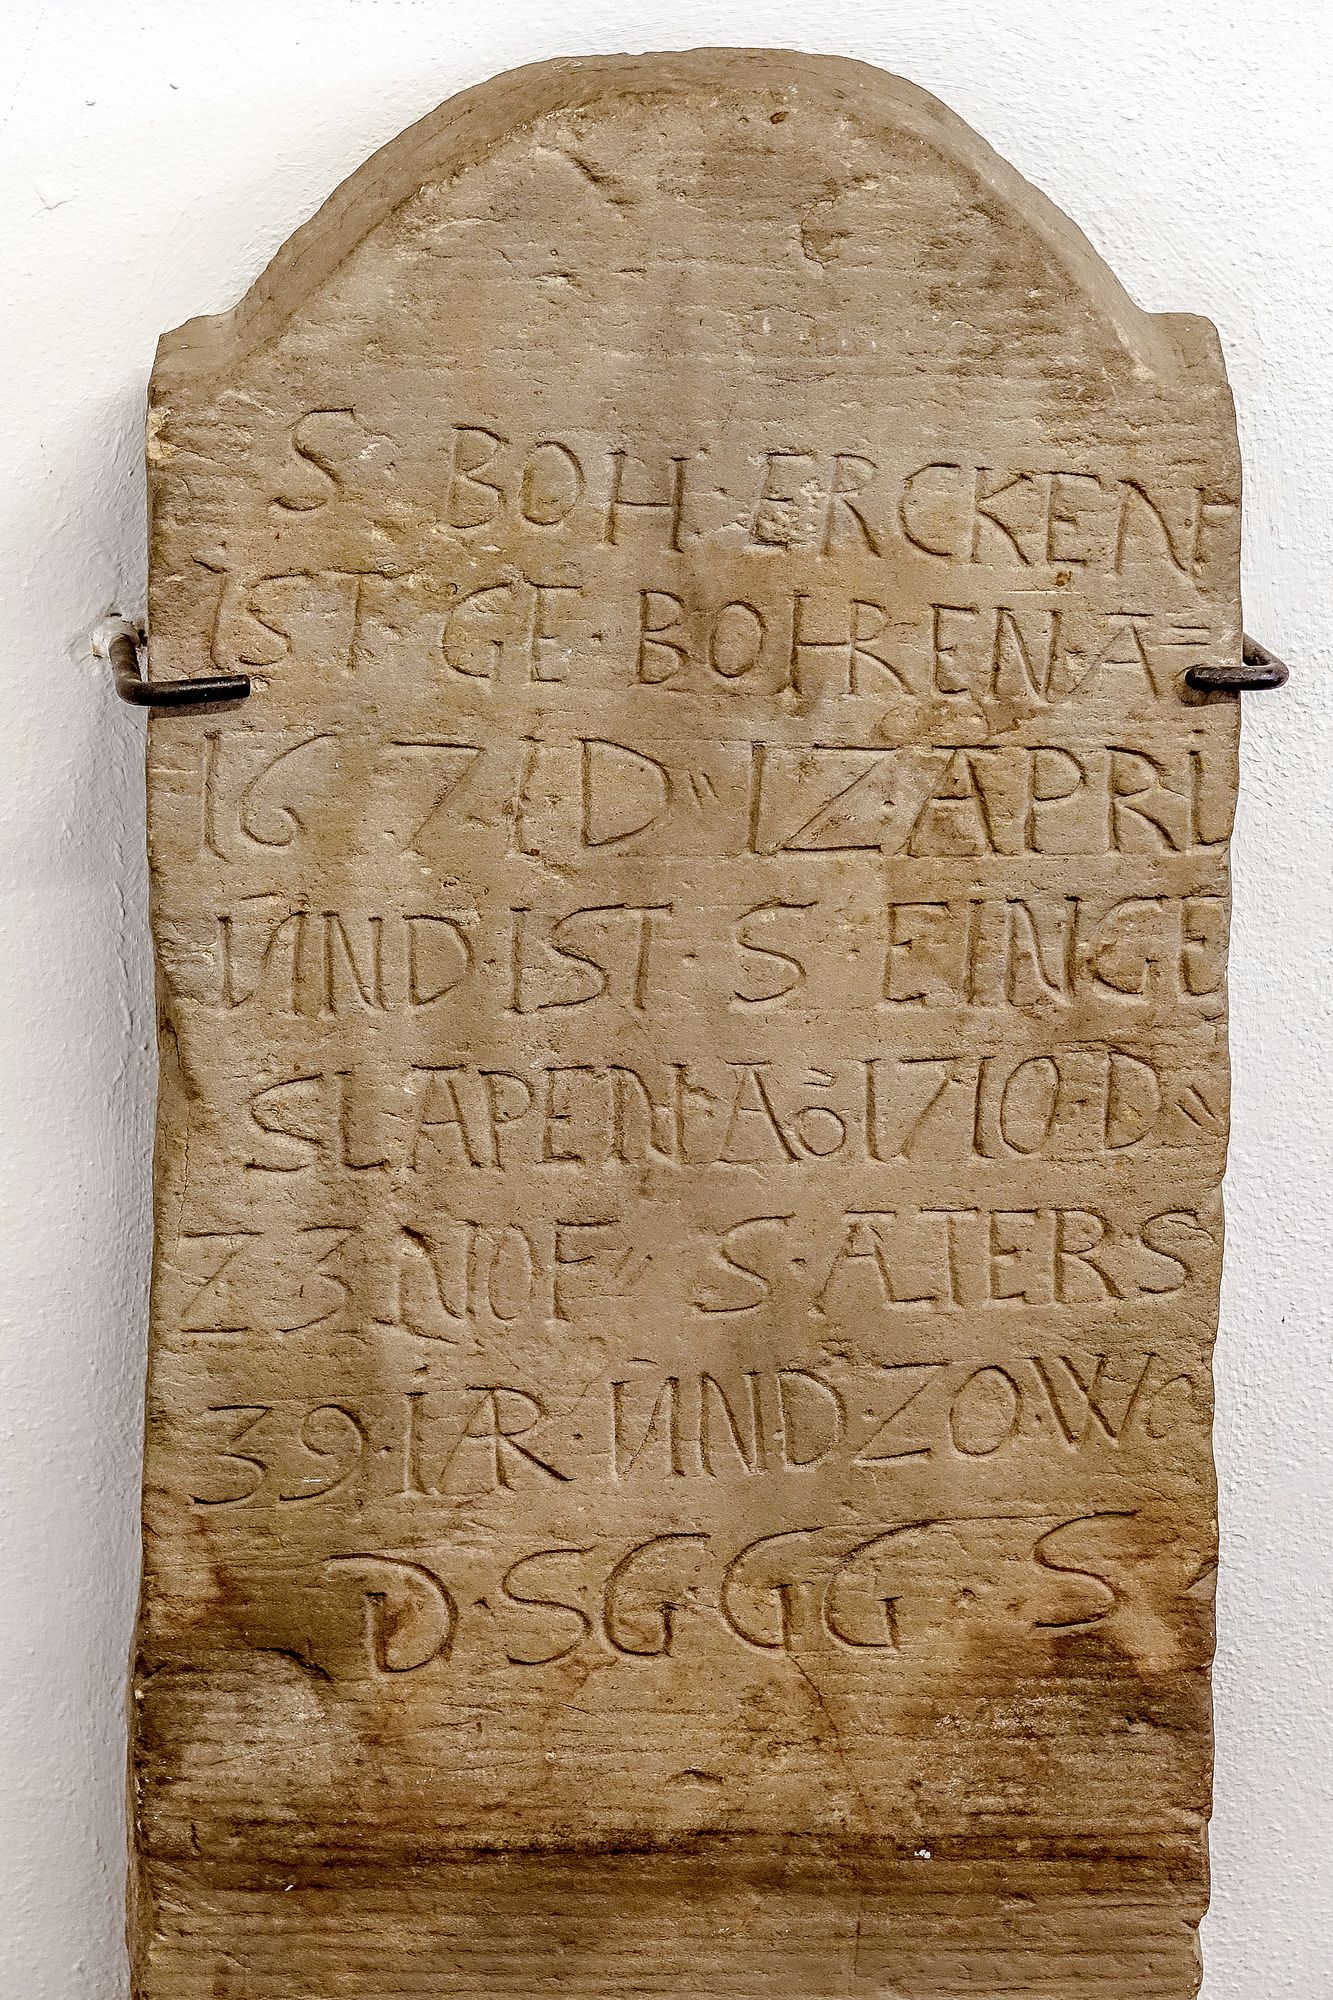 S · BOH · ERCKEN
IST · GE · BOHREN · A =
1671 D " 1Z APRIL
UND · IST · S EINGE
SLAPEN · Aº 1710 · D "
Z3 NOF " S · ALTERS
39 · IAR · UND · ZO · W
D · SGGG · S